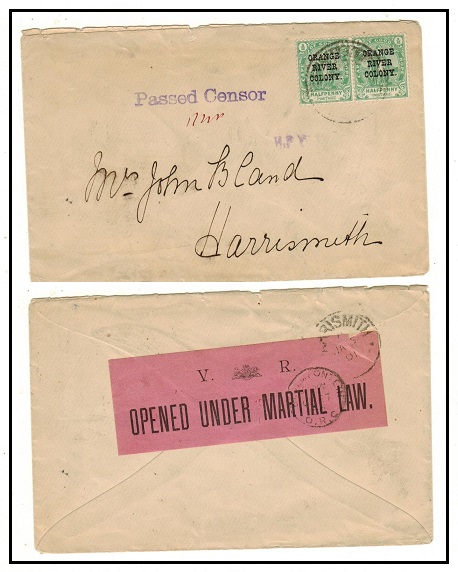 ORANGE RIVER COLONY.
HALFPENNY
ORANGE RIVER COLONY.
HALFPENNY
Passed Censor
Mrs John Bland
Harrismith
V. R.
OPENED UNDER MARTIAL LAW.